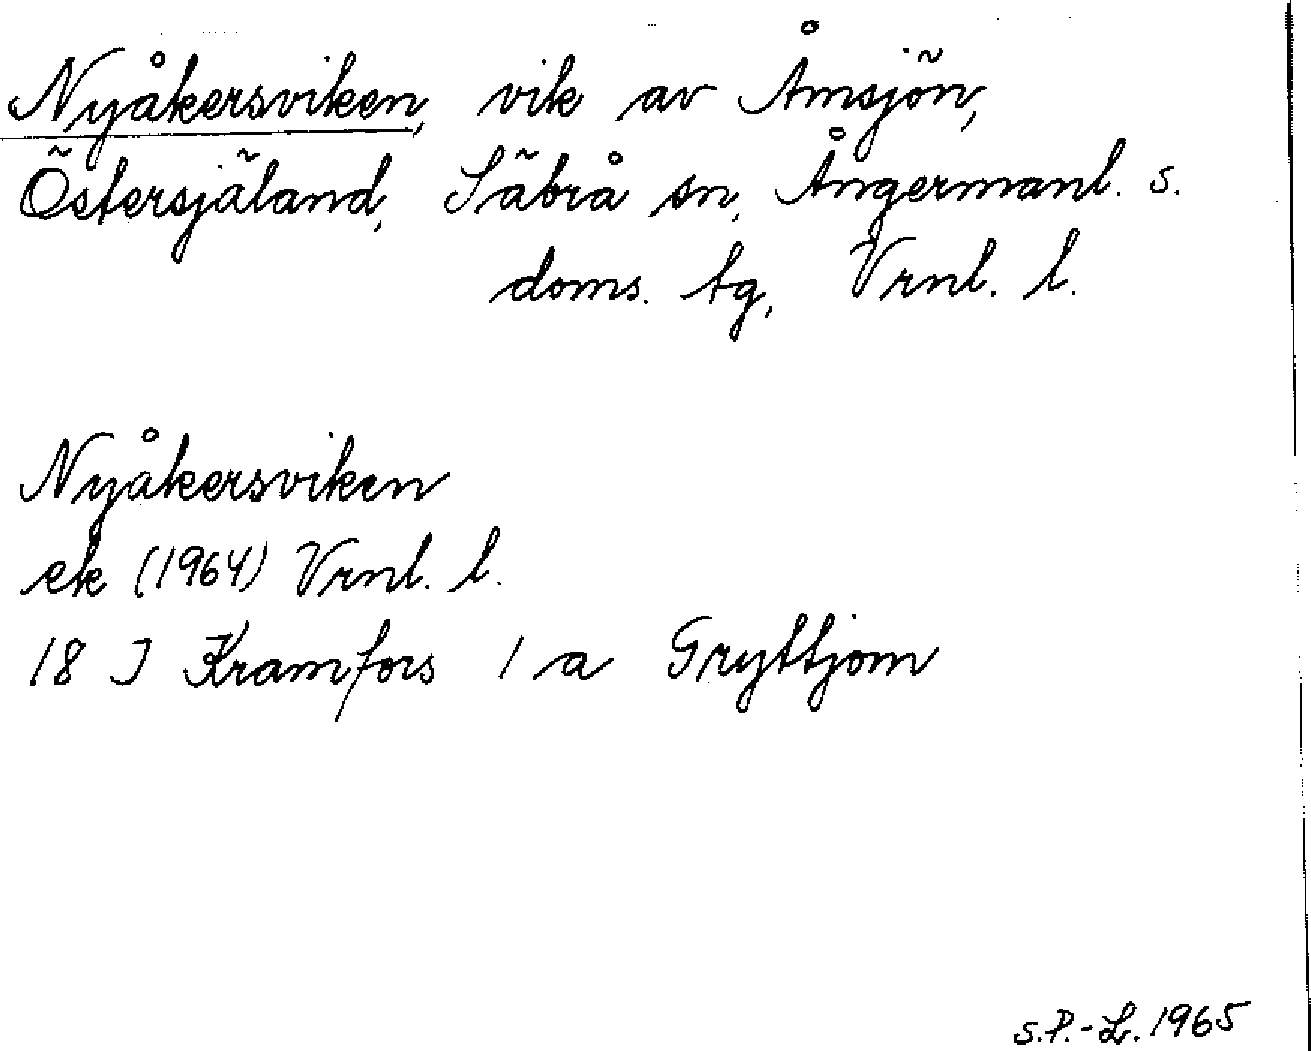 Nyåkersviken, vik av Åmsjön,
Östersjäland, Säbrå sn, Ångermanl. s.
doms. tg, Vrnl. l.
Nyåkersviken
ek (1964) Vrnl. l.
18 J Kramfors 1 a Gryttjom
S.P.-L. 1965